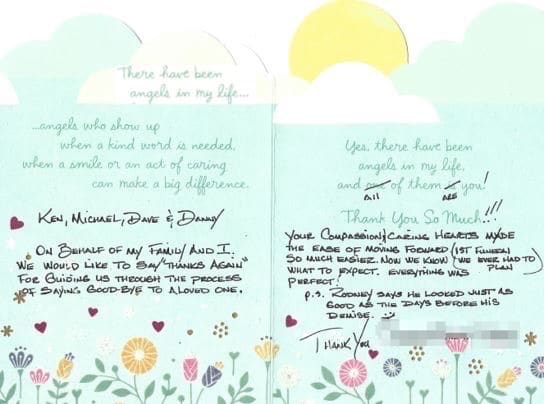 There have been
angels in my life...
...angels who show up
when a kind word is needed,
when a smile or an act of caring
can make a big difference.
KEN, MICHAEL, DAVE & DANNY
ON BEHALF OF MY FAMILY AND I.
WE WOULD LIKE TO SAY "THANKS AGAIN"
FOR GUIDING US THROUGH THE PROCESS
OF SAYING GOOD-BYE TO A LOVED ONE.
Yes, there have been
angels in my life,
and one of them is you!
All ARE
Thank You So Much!!!
YOUR COMPASSION & CARING HEARTS MADE
THE EASE OF MOVING FORWARD (1ST FUNERAL
SO MUCH EASIER. NOW WE KNOW WE EVER HAD TO
WHAT TO EXPECT. EVERYTHING WAS PLAN)
PERFECT!
P.S. RODNEY SAYS HE LOOKED JUST AS
GOOD AS THE DAYS BEFORE HIS
DEMISE.
THANK YOU